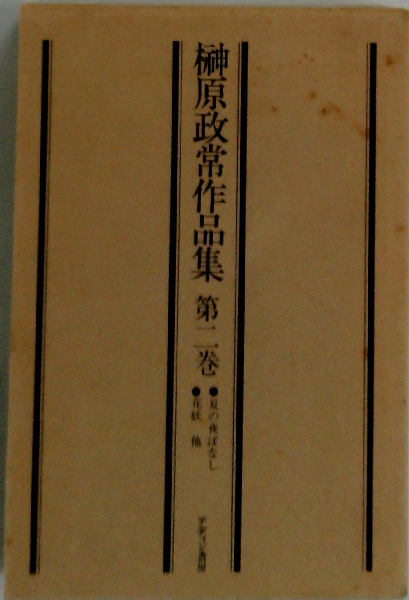 榊原政常作品集 第二巻
●夏の夜ばなし
●花妖 他
テアトロ書房